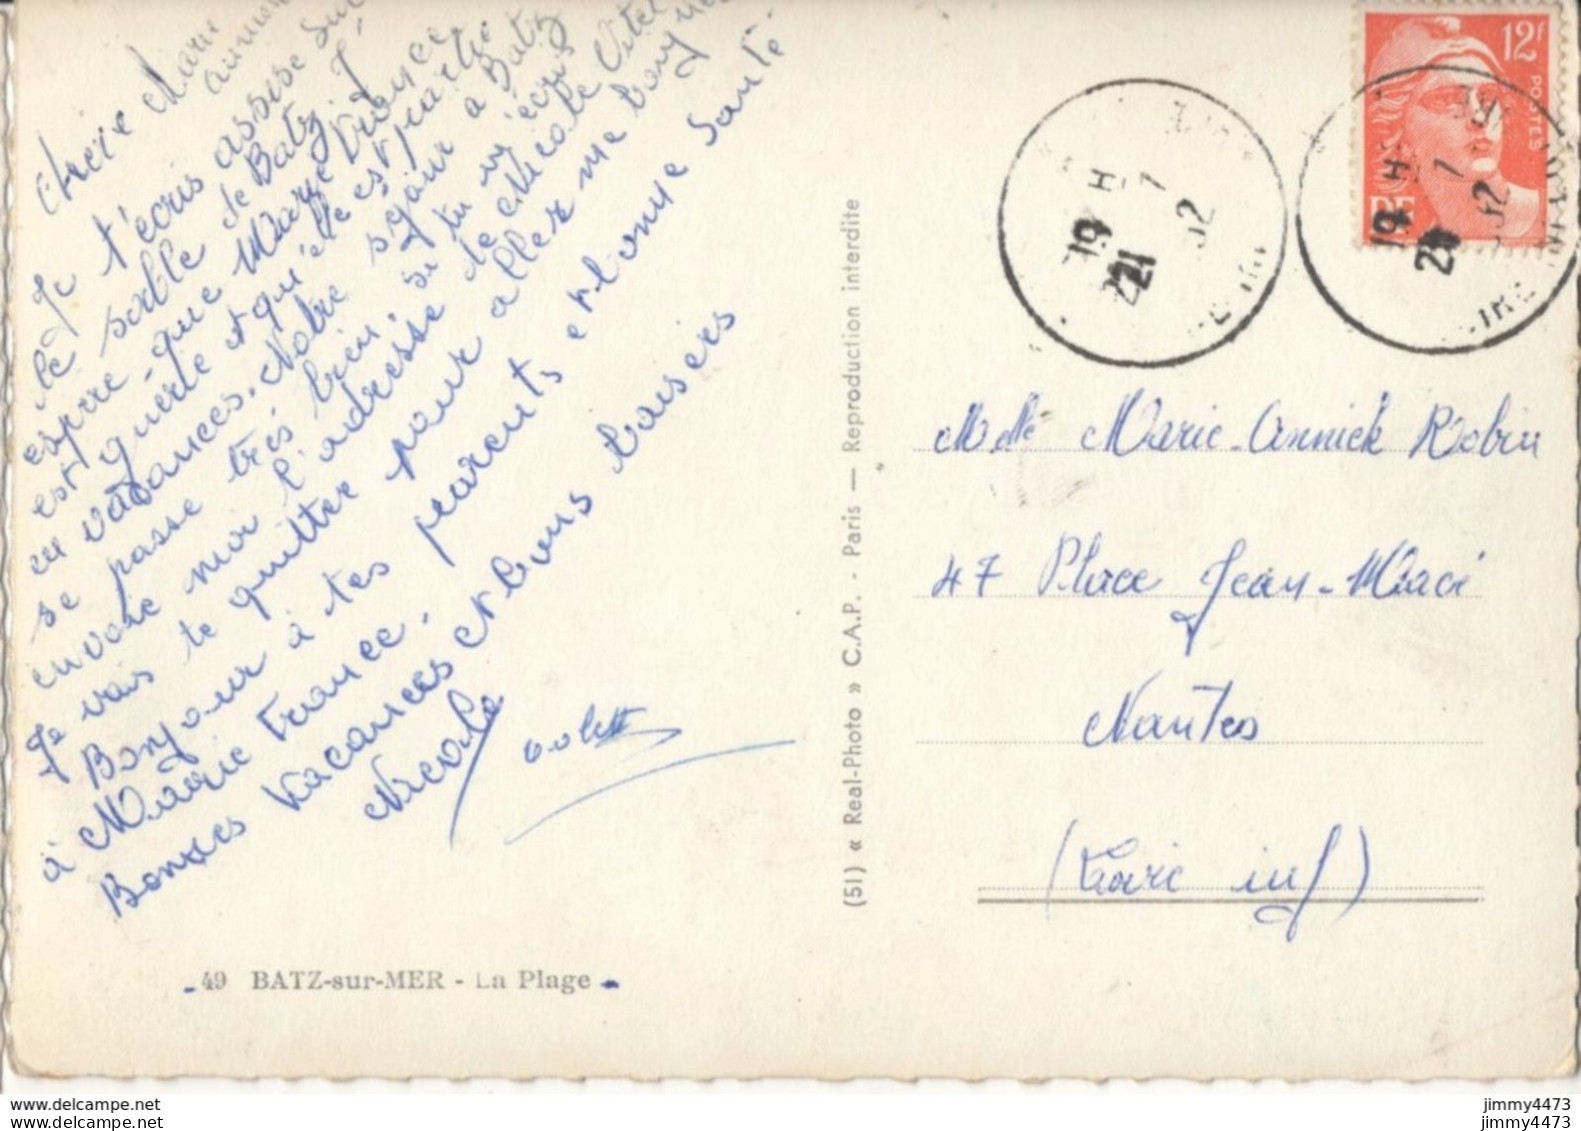 Chère Marie
Annick
Je t'écris assise sur
le sable de Batz. J'
espère que Marie France
est guérie et qu'elle est partie
en vacances. Notre séjour à Batz
se passe très bien, si tu m'écris
envoie moi l'adresse de Nicole
Je vais te quitter pour aller me baigner
Bonjour à tes parents et bonne santé
à Marie France.
Bonnes Vacances et bons baisers
Nicole
49 BATZ-sur-MER - La Plage
(51) « Real-Photo » C.A.P. - Paris — Reproduction interdite
12F
POSTES
RF
19 H
21 7
52
19 H
21 7
52
Melle Marie-Annick Robin
47 Place Jean-Macé
Nantes
(Loire inf)
jimmy4473
jimmy4473
www.delcampe.net
www.delcampe.net